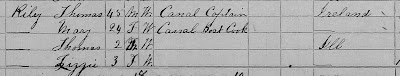 Riley Thomas 45 M W Canal Captain Ireland
— Mary 24 F W Canal Boat Cook "
— Thomas 2 M W Ill
— Lizzie 3 F W